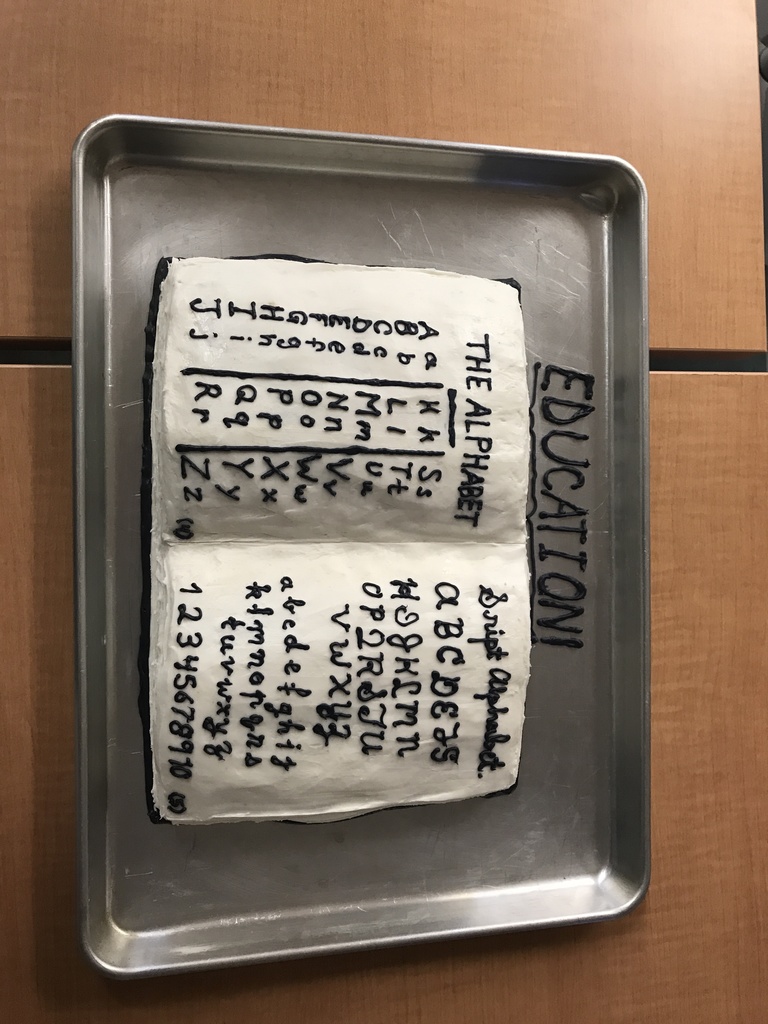 EDUCATION!
THE ALPHABET
A a K k S s
B b L l T t
C c M m U u
D d N n V v
E e O o W w
F f P p X x
G g Q q Y y
H h R r Z z
I i
J j
Script Alphabet.
A B C D E F G
H I J K L M N
O P Q R S T U
V W X Y Z
a b c d e f g h i j
k l m n o p q r s
t u v w x y z
1 2 3 4 5 6 7 8 9 10